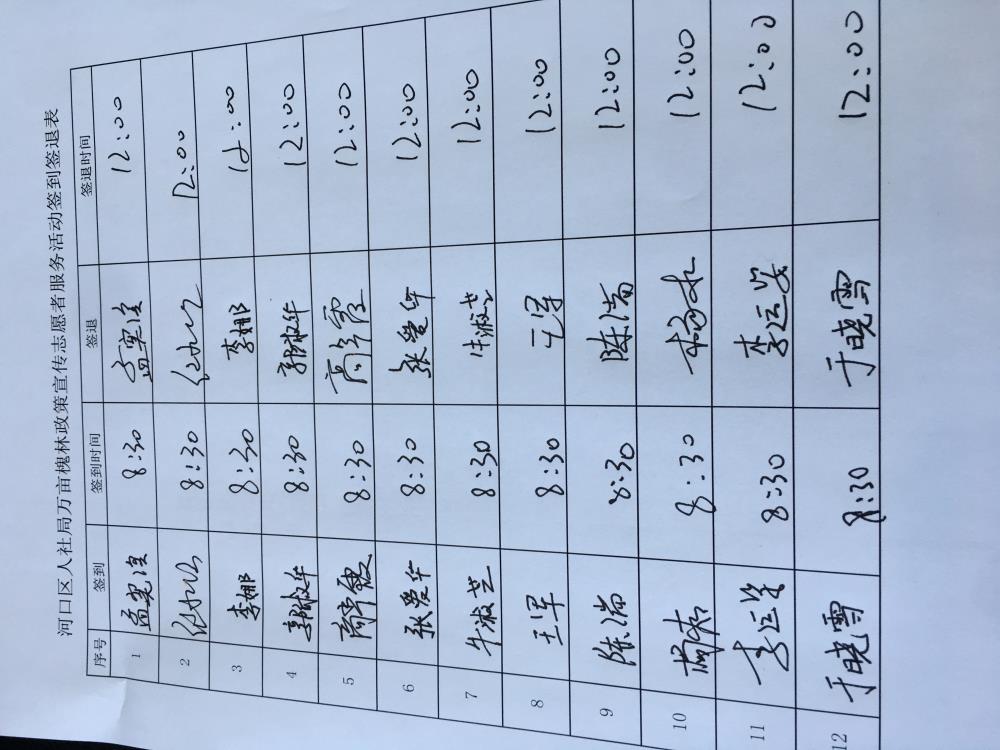 河口区人社局万亩槐林政策宣传志愿者服务活动签到签退表
序号 签到 签到时间 签退 签退时间
1 8:30 12:00
2 8:30 12:00
3 李娜 8:30 李娜 12:00
4 郭淑华 8:30 郭淑华 12:00
5 8:30 12:00
6 张爱华 8:30 张爱华 12:00
7 牛淑芝 8:30 牛淑芝 12:00
8 王军 8:30 王军 12:00
9 陈瑞 8:30 陈瑞 12:00
10 8:30 12:00
11 8:30 12:00
12 于晓雪 8:30 于晓雪 12:00